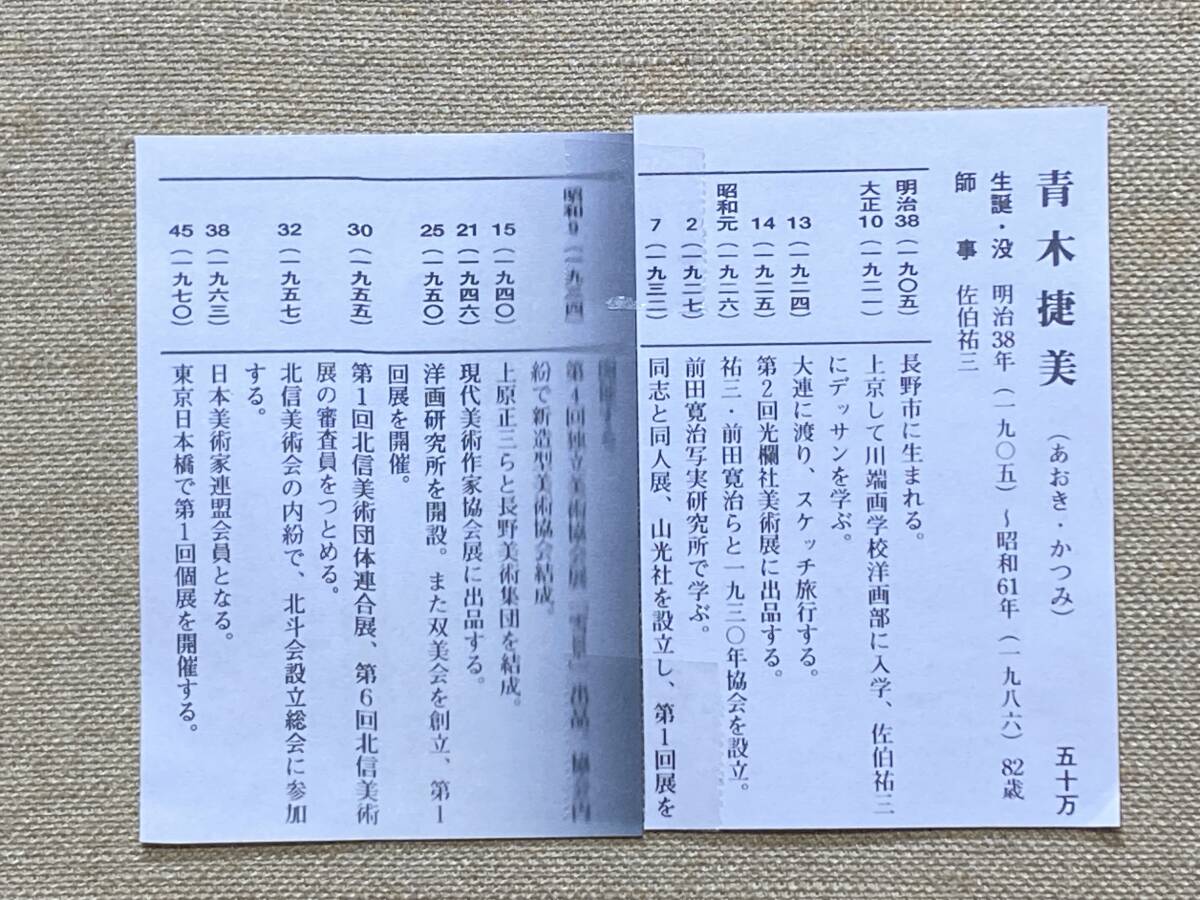 青木捷美　（あおき・かつみ）　五十万
生誕・没　明治38年（一九〇五）〜昭和61年（一九八六）82歳
師　事　佐伯祐三
明治38（一九〇五）　長野市に生まれる。
大正10（一九二一）　上京して川端画学校洋画部に入学、佐伯祐三
にデッサンを学ぶ。
13（一九二四）　大連に渡り、スケッチ旅行する。
14（一九二五）　第2回光欄社美術展に出品する。
昭和元（一九二六）　祐三・前田寛治らと一九三〇年協会を設立。
2（一九二七）　前田寛治写実研究所で学ぶ。
7（一九三二）　同志と同人展、山光社を設立し、第1回展を
昭和9（一九三四）　第4回独立美術協会展　出品　協会内
紛で新造型美術協会結成。
15（一九四〇）　上原正三らと長野美術集団を結成。
21（一九四六）　現代美術作家協会展に出品する。
25（一九五〇）　洋画研究所を開設。また双美会を創立、第1
回展を開催。
30（一九五五）　第1回北信美術団体連合展、第6回北信美術
展の審査員をつとめる。
32（一九五七）　北信美術会の内紛で、北斗会設立総会に参加
する。
38（一九六三）　日本美術家連盟会員となる。
45（一九七〇）　東京日本橋で第1回個展を開催する。